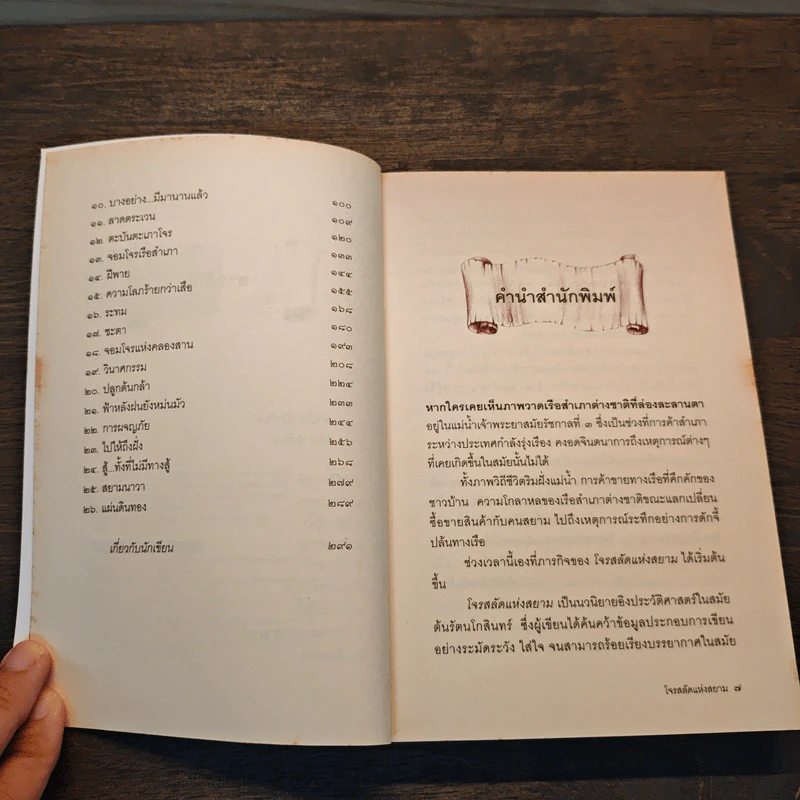 ๑๐. บางอย่าง...มีมานานแล้ว ๑๐๐
๑๑. ลาดตระเวน ๑๐๙
๑๒. ตะบันตะเภาโจร ๑๒๐
๑๓. จอมโจรเรือสำเภา ๑๓๓
๑๔. ฝีพาย ๑๔๔
๑๕. ความโลภร้ายกว่าเสือ ๑๕๕
๑๖. ระทม ๑๖๘
๑๗. ชะตา ๑๘๐
๑๘. จอมโจรแห่งคลองสาน ๑๙๓
๑๙. วินาศกรรม ๒๐๘
๒๐. ปลูกต้นกล้า ๒๒๔
๒๑. ฟ้าหลังฝนยังหม่นมัว ๒๓๓
๒๒. การผจญภัย ๒๔๔
๒๓. ไปให้ถึงฝั่ง ๒๕๖
๒๔. สู้...ทั้งที่ไม่มีทางสู้ ๒๖๘
๒๕. สยามนาวา ๒๗๙
๒๖. แผ่นดินทอง ๒๘๙
เกี่ยวกับนักเขียน ๒๙๑
คำนำสำนักพิมพ์
หากใครเคยเห็นภาพวาดเรือสำเภาต่างชาติที่ล่องละลานตา
อยู่ในแม่น้ำเจ้าพระยาสมัยรัชกาลที่ ๓ ซึ่งเป็นช่วงที่การค้าสำเภา
ระหว่างประเทศกำลังรุ่งเรือง คงอดจินตนาการถึงเหตุการณ์ต่างๆ
ที่เคยเกิดขึ้นในสมัยนั้นไม่ได้
ทั้งภาพวิถีชีวิตริมฝั่งแม่น้ำ การค้าขายทางเรือที่คึกคักของ
ชาวบ้าน ความโกลาหลของเรือสำเภาต่างชาติขณะแลกเปลี่ยน
ซื้อขายสินค้ากับคนสยาม ไปถึงเหตุการณ์ระทึกอย่างการดักจี้
ปล้นทางเรือ
ช่วงเวลานี้เองที่ภารกิจของ โจรสลัดแห่งสยาม ได้เริ่มต้น
ขึ้น
โจรสลัดแห่งสยาม เป็นนวนิยายอิงประวัติศาสตร์ในสมัย
ต้นรัตนโกสินทร์ ซึ่งผู้เขียนได้ค้นคว้าข้อมูลประกอบการเขียน
อย่างระมัดระวัง ใส่ใจ จนสามารถร้อยเรียงบรรยากาศในสมัย
โจรสลัดแห่งสยาม ๗